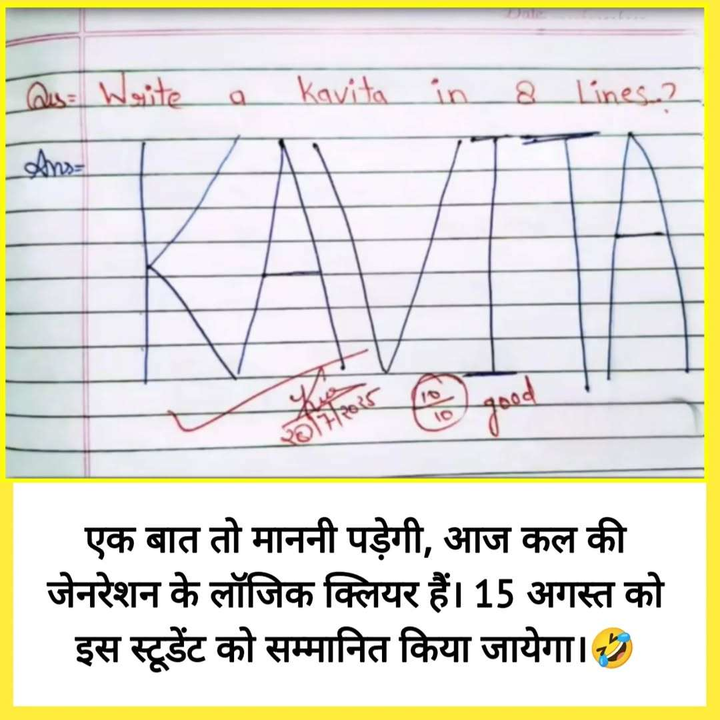 Date
Qus= Write a Kavita in 8 Lines..?
Ans=
KAVITA
20/7/2025
10/10 good
एक बात तो माननी पड़ेगी, आज कल की
जेनरेशन के लॉजिक क्लियर हैं। 15 अगस्त को
इस स्टूडेंट को सम्मानित किया जायेगा।🤣